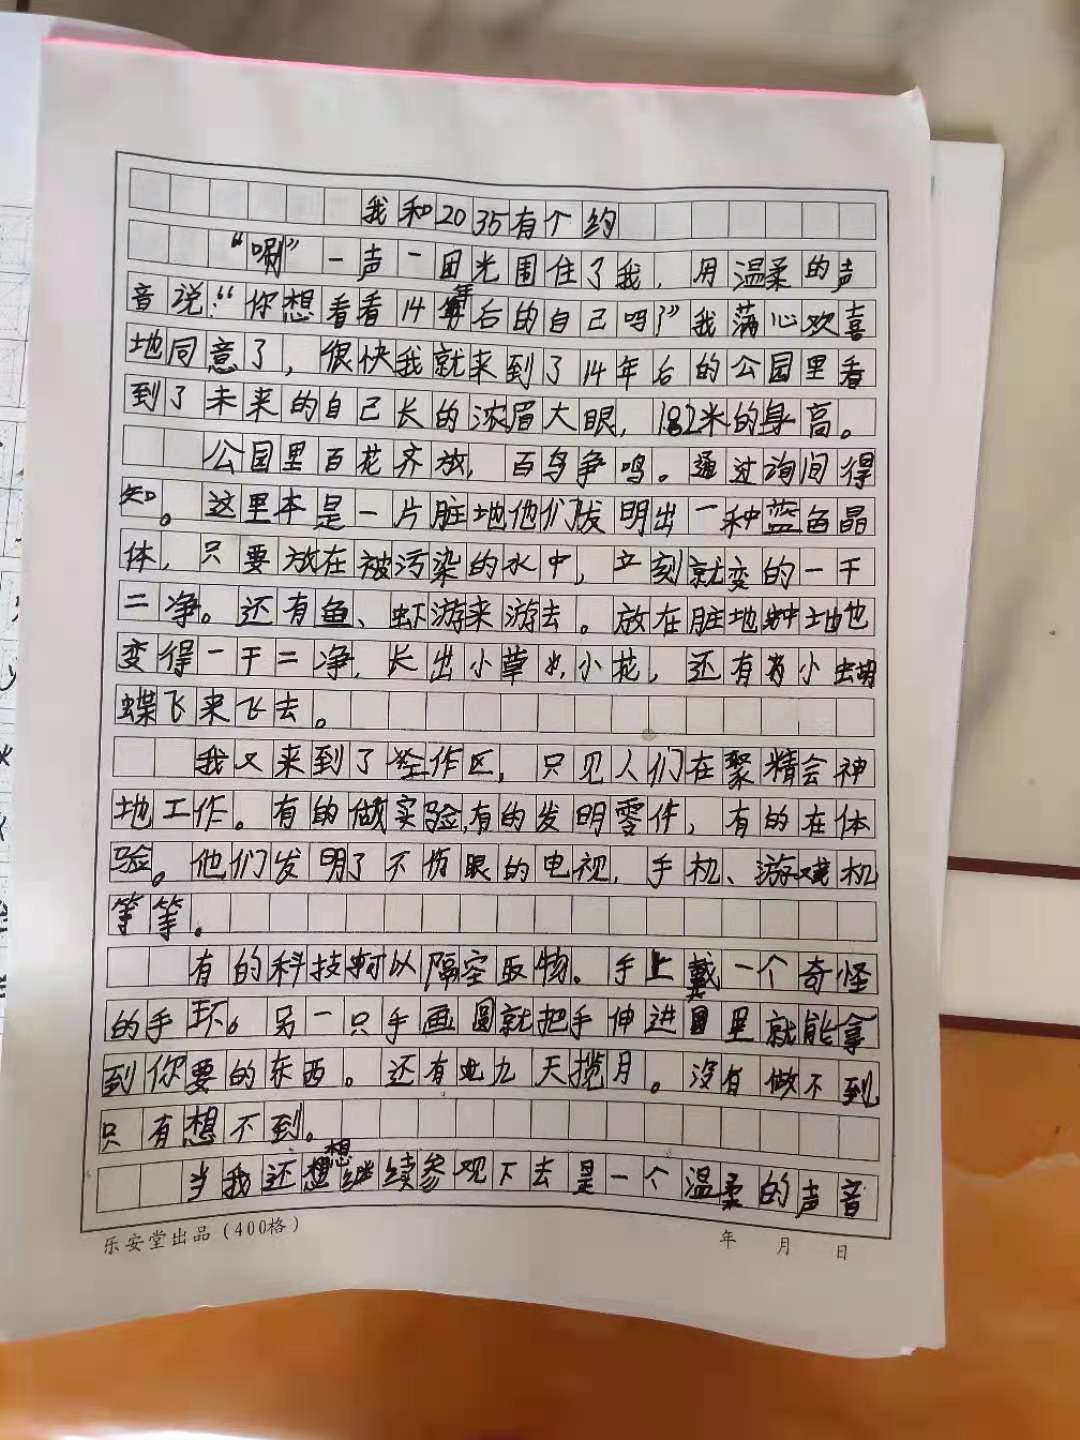 我和2035有个约
“唰”一声一团光围住了我，用温柔的声
音说：“你想看看14年后的自己吗？”我满心欢喜
地同意了，很快我就来到了14年后的公园里看
到了未来的自己长的浓眉大眼，1.82米的身高。
公园里百花齐放，百鸟争鸣。通过询问得
知。这里本是一片脏地他们发明出一种蓝色晶
体，只要放在被污染的水中，立刻就变的一干
二净。还有鱼、虾游来游去。放在脏地中土地也
变得一干二净，长出小草小花，还有小蝴
蝶飞来飞去。
我又来到了工作区，只见人们在聚精会神
地工作。有的做实验，有的发明零件，有的在体
验。他们发明了不伤眼的电视，手机、游戏机
等等。
有的科技可以隔空取物。手上戴一个奇怪
的手环。另一只手画圆就把手伸进圆里就能拿
到你要的东西。还有九天揽月。没有做不到
只有想不到。
当我还想继续参观下去是一个温柔的声音
乐安堂出品（400格）
年 月 日